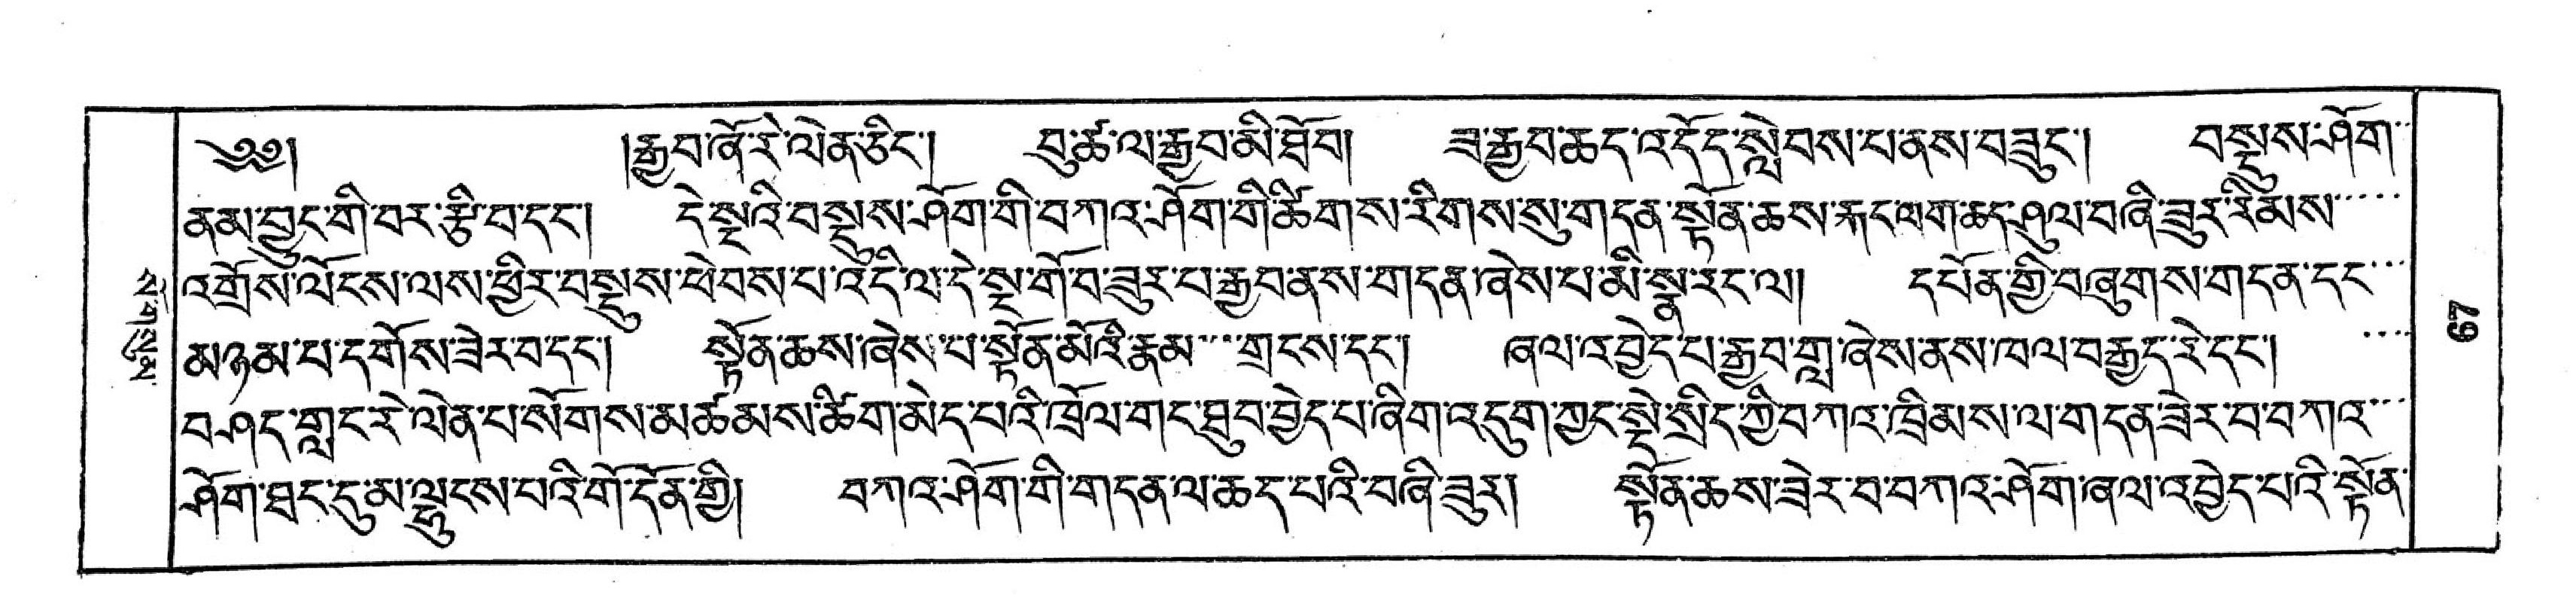 ༄༅། །རྒྱབ་ཞོ་རེ་ལེན་ཅིང་། བུ་ཚ་ལ་རྒྱབ་མི་ཐོབ། ཟ་རྒྱབ་ཆད་འདོད་སླེབས་པ་ནས་བཟུང་། བསྡུས་ཤོག་
ནམ་བྱུང་གི་བར་རྩི་བ་དང་། དེ་སྔའི་བསྡུས་ཤོག་གི་བཀའ་ཤོག་གི་ཚིགས་རིགས་སུ་གདན་སྟོན་ཆས་རྐང་ལག་ཆད་ཤུལ་བཞི་ཟུར་རིམས་
འགྲོས་ལོངས་ལས་ཕྱིར་བསྡུས་ཕེབས་པ་འདི་ལ་དེ་སྔ་གོ་བ་ཟུར་པ་རྒྱབ་ནས་གདན་ཞེས་པ་མི་སྣ་རང་ལ། དཔོན་གྱི་བཞུགས་གདན་དང་
མཉམ་པ་དགོས་ཟེར་བ་དང་། སྟོན་ཆས་ཞེས་པ་སྟོན་མོའི་རྣམ་གྲངས་དང་། ཞལ་འབྱེད་པ་རྒྱབ་གླ་ཞེས་ནས་ཁལ་བརྒྱད་རེ་དང་།
བཤད་གླང་རེ་ལེན་པ་སོགས་མཚམས་ཚིག་མེད་པའི་ཁྲོལ་གང་ཐུབ་བྱེད་པ་ཞིག་འདུག་ཀྱང་སྡེ་སྲིད་ཀྱི་བཀའ་ཁྲིམས་ལ་གདན་ཟེར་བ་བཀའ་
ཤོག་ཐང་དུ་མ་ལྷུངས་པའི་གོ་དོན་གྱི། བཀའ་ཤོག་གི་གདན་ལ་ཆད་པའི་བཞི་ཟུར། སྟོན་ཆས་ཟེར་བ་བཀའ་ཤོག་ཞལ་འབྱེད་པའི་སྟོན་